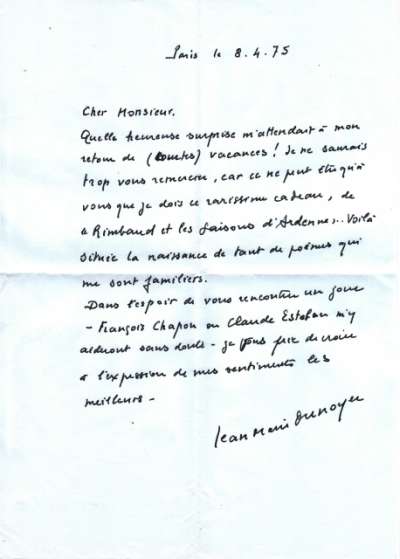 Paris le 8.4.75
Cher Monsieur.
Quelle heureuse surprise m'attendait à mon
retour de (courtes) vacances! Je ne saurais
trop vous remercier, car ce ne peut être qu'à
vous que je dois ce rarissime cadeau, de
« Rimbaud et les saisons d'Ardenne». Voilà
située la naissance de tant de poèmes qui
me sont familiers.
Dans l'espoir de vous rencontrer un jour
- François Chapon ou Claude Esteban m'y
aideront sans doute - je vous prie de croire
à l'expression de mes sentiments les
meilleurs -
Jean Marie Dunoyer